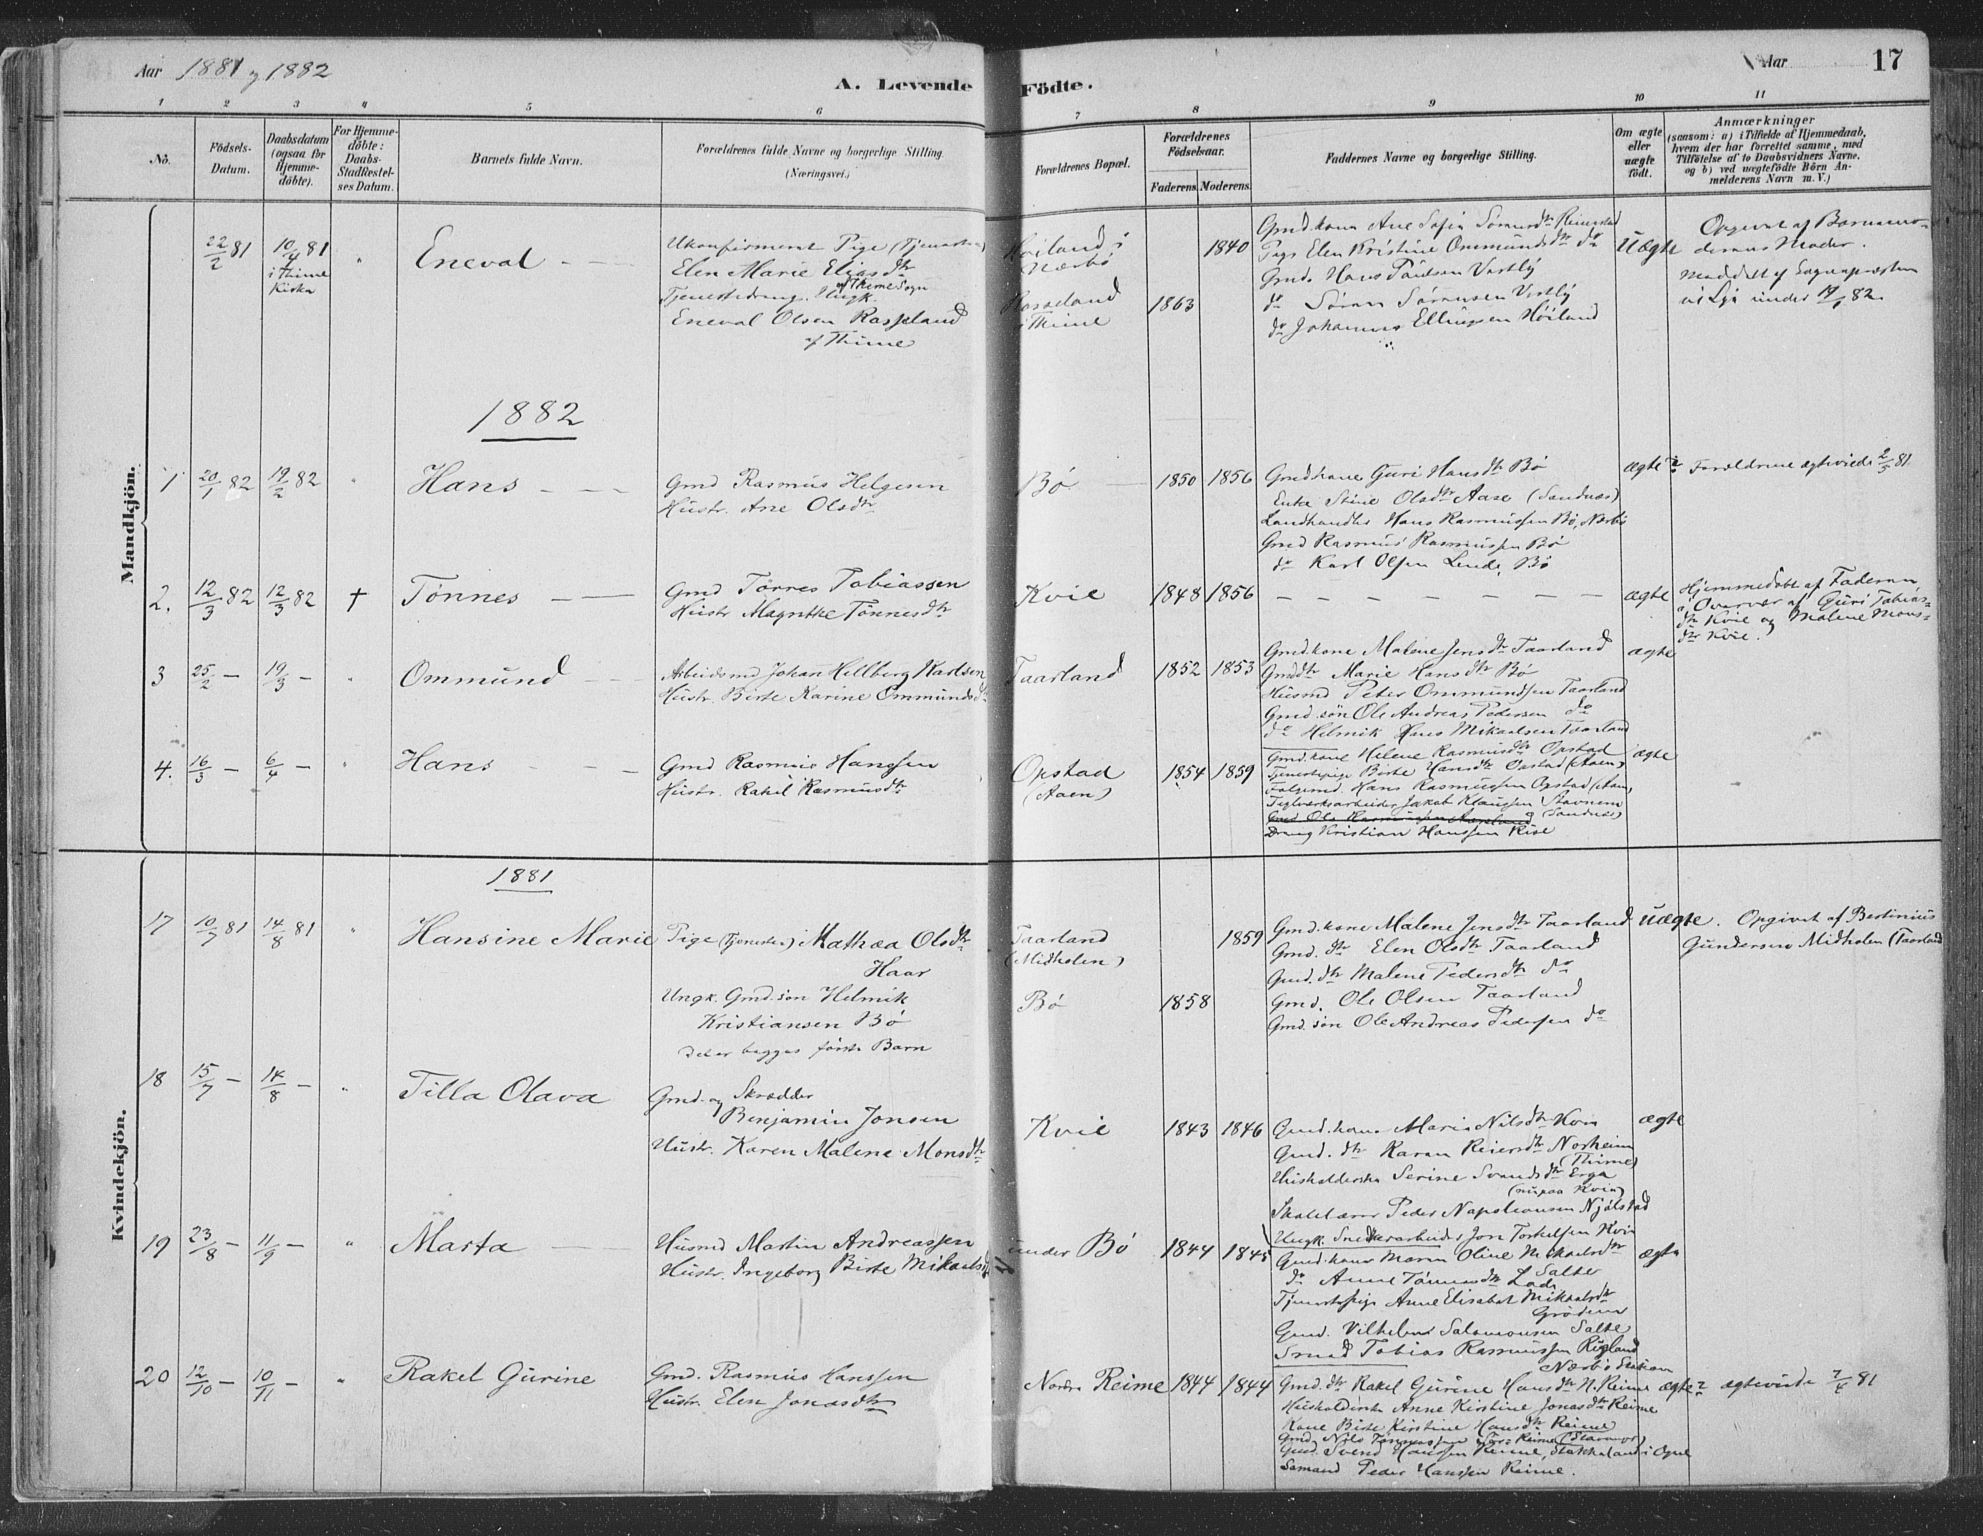 Aar 1881 og 1882
A. Levende Födte.
Aar
17
1 2 3 " 5 6 7 8 9 10 11
No.
Födsels-
Datum.
Daabsdatum
(ogsaa for
Hjemme-
döbte).
For Hjemme-
döbte:
Daabs-
Stadfæstel-
ses Datum.
Barnets fulde Navn.
Forældrenes fulde Navne og borgerlige Stilling
(Næringsvei.)
Forældrenes Bopæl.
Forældrenes
Födselsaar.
Faderens. Moderens.
Faddernes Navne og borgerlige Stilling.
Om ægte
eller
uægte
födt.
Anmærkninger
(saasom: a) i Tilfælde af Hjemmedaab,
hvem der har forrettet samme, med
Tilföielse af to Daabsvidners Navne,
og b) ved uægtefödte Börn An-
melderens Navn m. V.)
Mandkjön.
22/2 81
10/4 81
i Thime
Kirke
"
Eneval
Ukonfirmeret Pige (Tjeneste)
Elen Marie Eliasdtr
af Thime Sogn
Tjenestedreng, Ungk.
Eneval Olsen Rasseland
af Thime
Høiland i
Nærbø
Rosseland
i Thime
1863
1840
Gmd.kone Ane Sofie Sörensdtr Reimestad
Pige Elen Kristine Ommundsdtr do
Gmd. Hans Paulsen Vestly
do Sören Sörensen Vestly
do Johannes Ellingsen Høiland
Uægte
Opgivet af Barnemo-
derens Moder.
Meddelt af Sognepræsten
i Lye under 19/1 82.
1882
1
20/1 82
19/2 82
"
Hans
Gmd Rasmus Helgesen
Hustr. Ane Olsdtr
Bø
1850 1856
Gmdkone Guri Hansdtr Bø
Enke Stine Olsdtr Aase (Sandnæs)
Landhandler Hans Rasmussen Bø, Nærbø
Gmd Rasmus Rasmussen Bø
do Karl Olsen Lende, Bø
ægte
Forældrene ægteviede 2/5 81.
2.
12/3 82
12/3 82
+
Tönnes
Gmd Törres Tobiassen
Hustr Magnthe Tönnesdtr
Kvie
1848 1856
ægte
Hjemmedöbt af Faderen
i Overvær af Guri Tobias-
dtr Kvie og Malene Mons-
dtr Kvie.
3
25/2 —
19/3 —
"
Ommund
Arbeidsmd Johan Hellberg Karlsen
Hustr Birte Karine Ommundsdtr
Taarland
1852 1853
Gmdkone Malene Jensdtr Taarland
Gmddtr Marie Hansdtr Bø
Husmd Peter Ommundsen Taarland
Gmd.sön Ole Andreas Pedersen do
do Helmik Hans Mikaelsen Taarland
ægte
4.
16/3 —
6/4 —
"
Hans
Gmd Rasmus Hansen
Hustr. Rakel Rasmusdtr
Opstad
(Aaen)
1854 1859
Gmd.kone Helene Rasmusdtr Opstad
Tjenestepige Birte Hansdtr Opstad (Aaen)
Folgemd. Hans Rasmussen Opstad (Aaen)
Teglverksarbeider Jakob Klaussen Stavnem
(Sandnæs)
Dreng Kristian Hansen Kise
ægte
Kvindekjön.
1881
17
10/7 81
14/8 81
"
Hansine Marie
Pige (Tjeneste) Mathea Olsdtr
Haar
Ungk. Gmd.sön Helmik
Kristiansen Bø
Det er begges første Barn
Taarland
(Midholen)
Bø
1858
1859
Gmd.kone Malene Jensdtr Taarland
Gmd. dtr Elen Olsdtr Taarland
Gmd. dtr Malene Pedersdtr do
Gmd. Ole Olsen Taarland
Gmd.sön Ole Andreas Pedersen do
Uægte.
Opgivet af Bertinius
Gundersen Midholen (Taarland
18
15/7 —
14/8 —
"
Tilla Olava
Gmd. og Skrædder
Benjamin Jonsen
Hustr. Karen Malene Monsdtr
Kvie
1843 1846
Gmd.kone Maria Nilsdtr Kvie
Gmd. dtr Karen Reiersdtr Norheim
(Thime)
Husholderske Serine Svendsdtr Erga
(nu paa Kvie)
Skolelærer Peder Napoleonsen Njølstad
Ungk. Snedkerarbeider Jon Torkelsen Kvie
ægte
19
23/8 —
11/9 —
"
Marta
Husmd Martin Andreassen
Hustr. Ingeborg Birte Mikaelsdtr
under Bø
1844 1845
Gmd.kone Maren Oline Mikaelsdtr
Salte
do Anne Tönnesdtr Lode
Tjenestepige Anne Elisabet Mikaelsdtr
Grödem
Gmd. Vilhelm Salomonsen Salte
Smed Tobias Rasmussen Rygland
Nærbø Station
ægte
20
12/10 —
10/11 —
"
Rakel Gurine
Gmd. Rasmus Hanssen
Hustr. Elen Jonasdtr
Nordre Reime
1844 1844
Gmd. dtr Rakel Gurine Hansdtr N. Reime
Husholderske Anne Kirstine Jonasdtr Reime
Kone Birte Kirstine Hansdtr Reime
Gmd. Nils Tönnessen Sör-Reime (Stavanger)
Gmd. Svend Hanssen Reime, Stokkeland i Ogne
Sømand Peder Hanssen Reime.
ægte
ægteviede 7/4 81